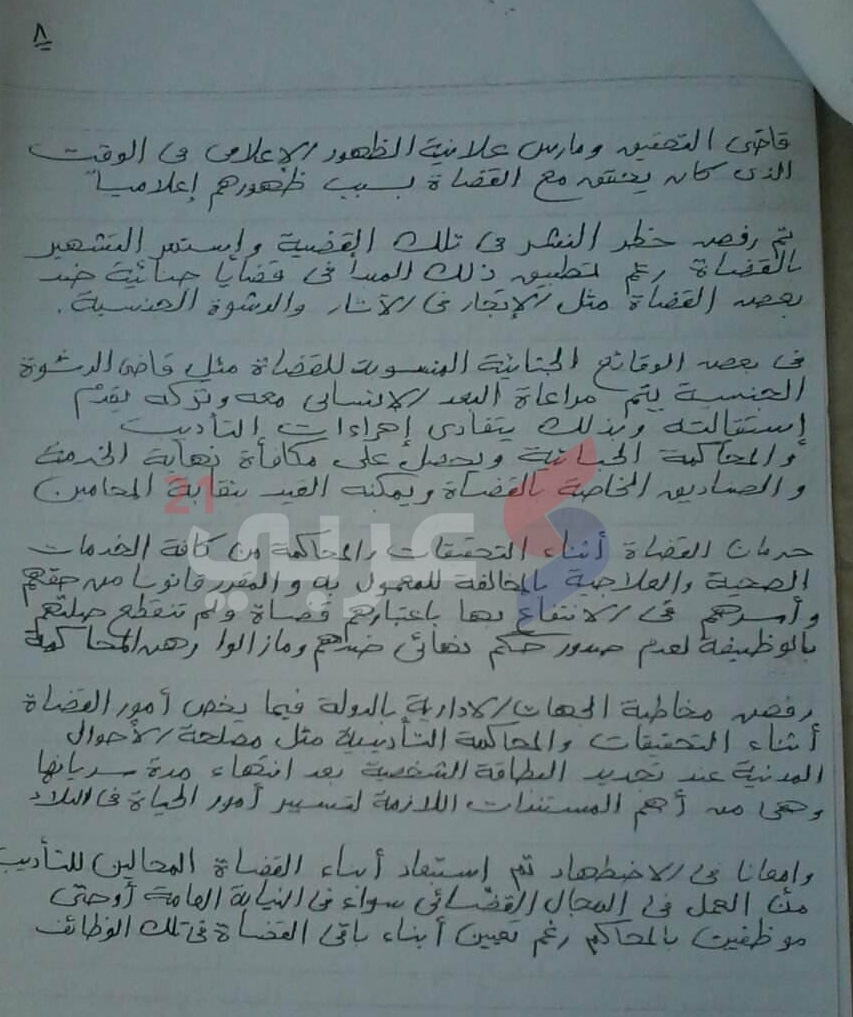 ٨
قاضى التحقيق ومارس علانية الظهور الإعلامى فى الوقيت
الذى كان يحقق مع القضاة بسبب ظهورهم إعلامياً
تم رفض حظر النشر فى تلك القضية وإستمر التشهير
بالقضاة رغم تطبيق ذلك المبدأ فى قضايا جنائية ضد
بعض القضاة مثل الإتجار فى الآثار والرشوة الجنسية .
فى بعض الوقائع الجنائية المنسوبة للقضاة مثل قاضى الرشوة
الجنسية يتم مراعاة البعد الإنسانى معه وتركه يقدم
إستقالته وبذلك يتفادى إجراءات التأديب
والمحاكمة الجنائية ويحصل على مكافأة نهاية الخدمة
والصناديق الخاصة بالقضاة ويمكنه القيد بنقابة المحامين
عربي 21
حرمان القضاة أثناء التحقيقات والمحاكمة من كافة الخدمات
الصحية والعلاجية بالمخالفة للمعمول به والمقرر قانونا من حقهم
وأسرهم فى الانتفاع بها باعتبارهم قضاة ولم تنقطع صلتهم
بالوظيفة لعدم صدور حكم نهائى ضدهم ومازالوا رهن المحاكمة
رفض مخاطبة الجهات الادارية بالدولة فيما يخص أمور القضاة
أثناء التحقيقات والمحاكمة التأديبية مثل مصلحة الأحوال
المدنية عند تجديد البطاقة الشخصية بعد انتهاء مدة سريانها
وهى من أهم المستندات اللازمة لتسيير أمور الحياة فى البلاد
وامعانا فى الاضطهاد تم إستبعاد أبناء القضاة المحالين للتأديب
من العمل فى المجال القضائى سواء فى النيابة العامة أوحتى
موظفين بالمحاكم رغم تعيين أبناء باقى القضاة فى تلك الوظائف